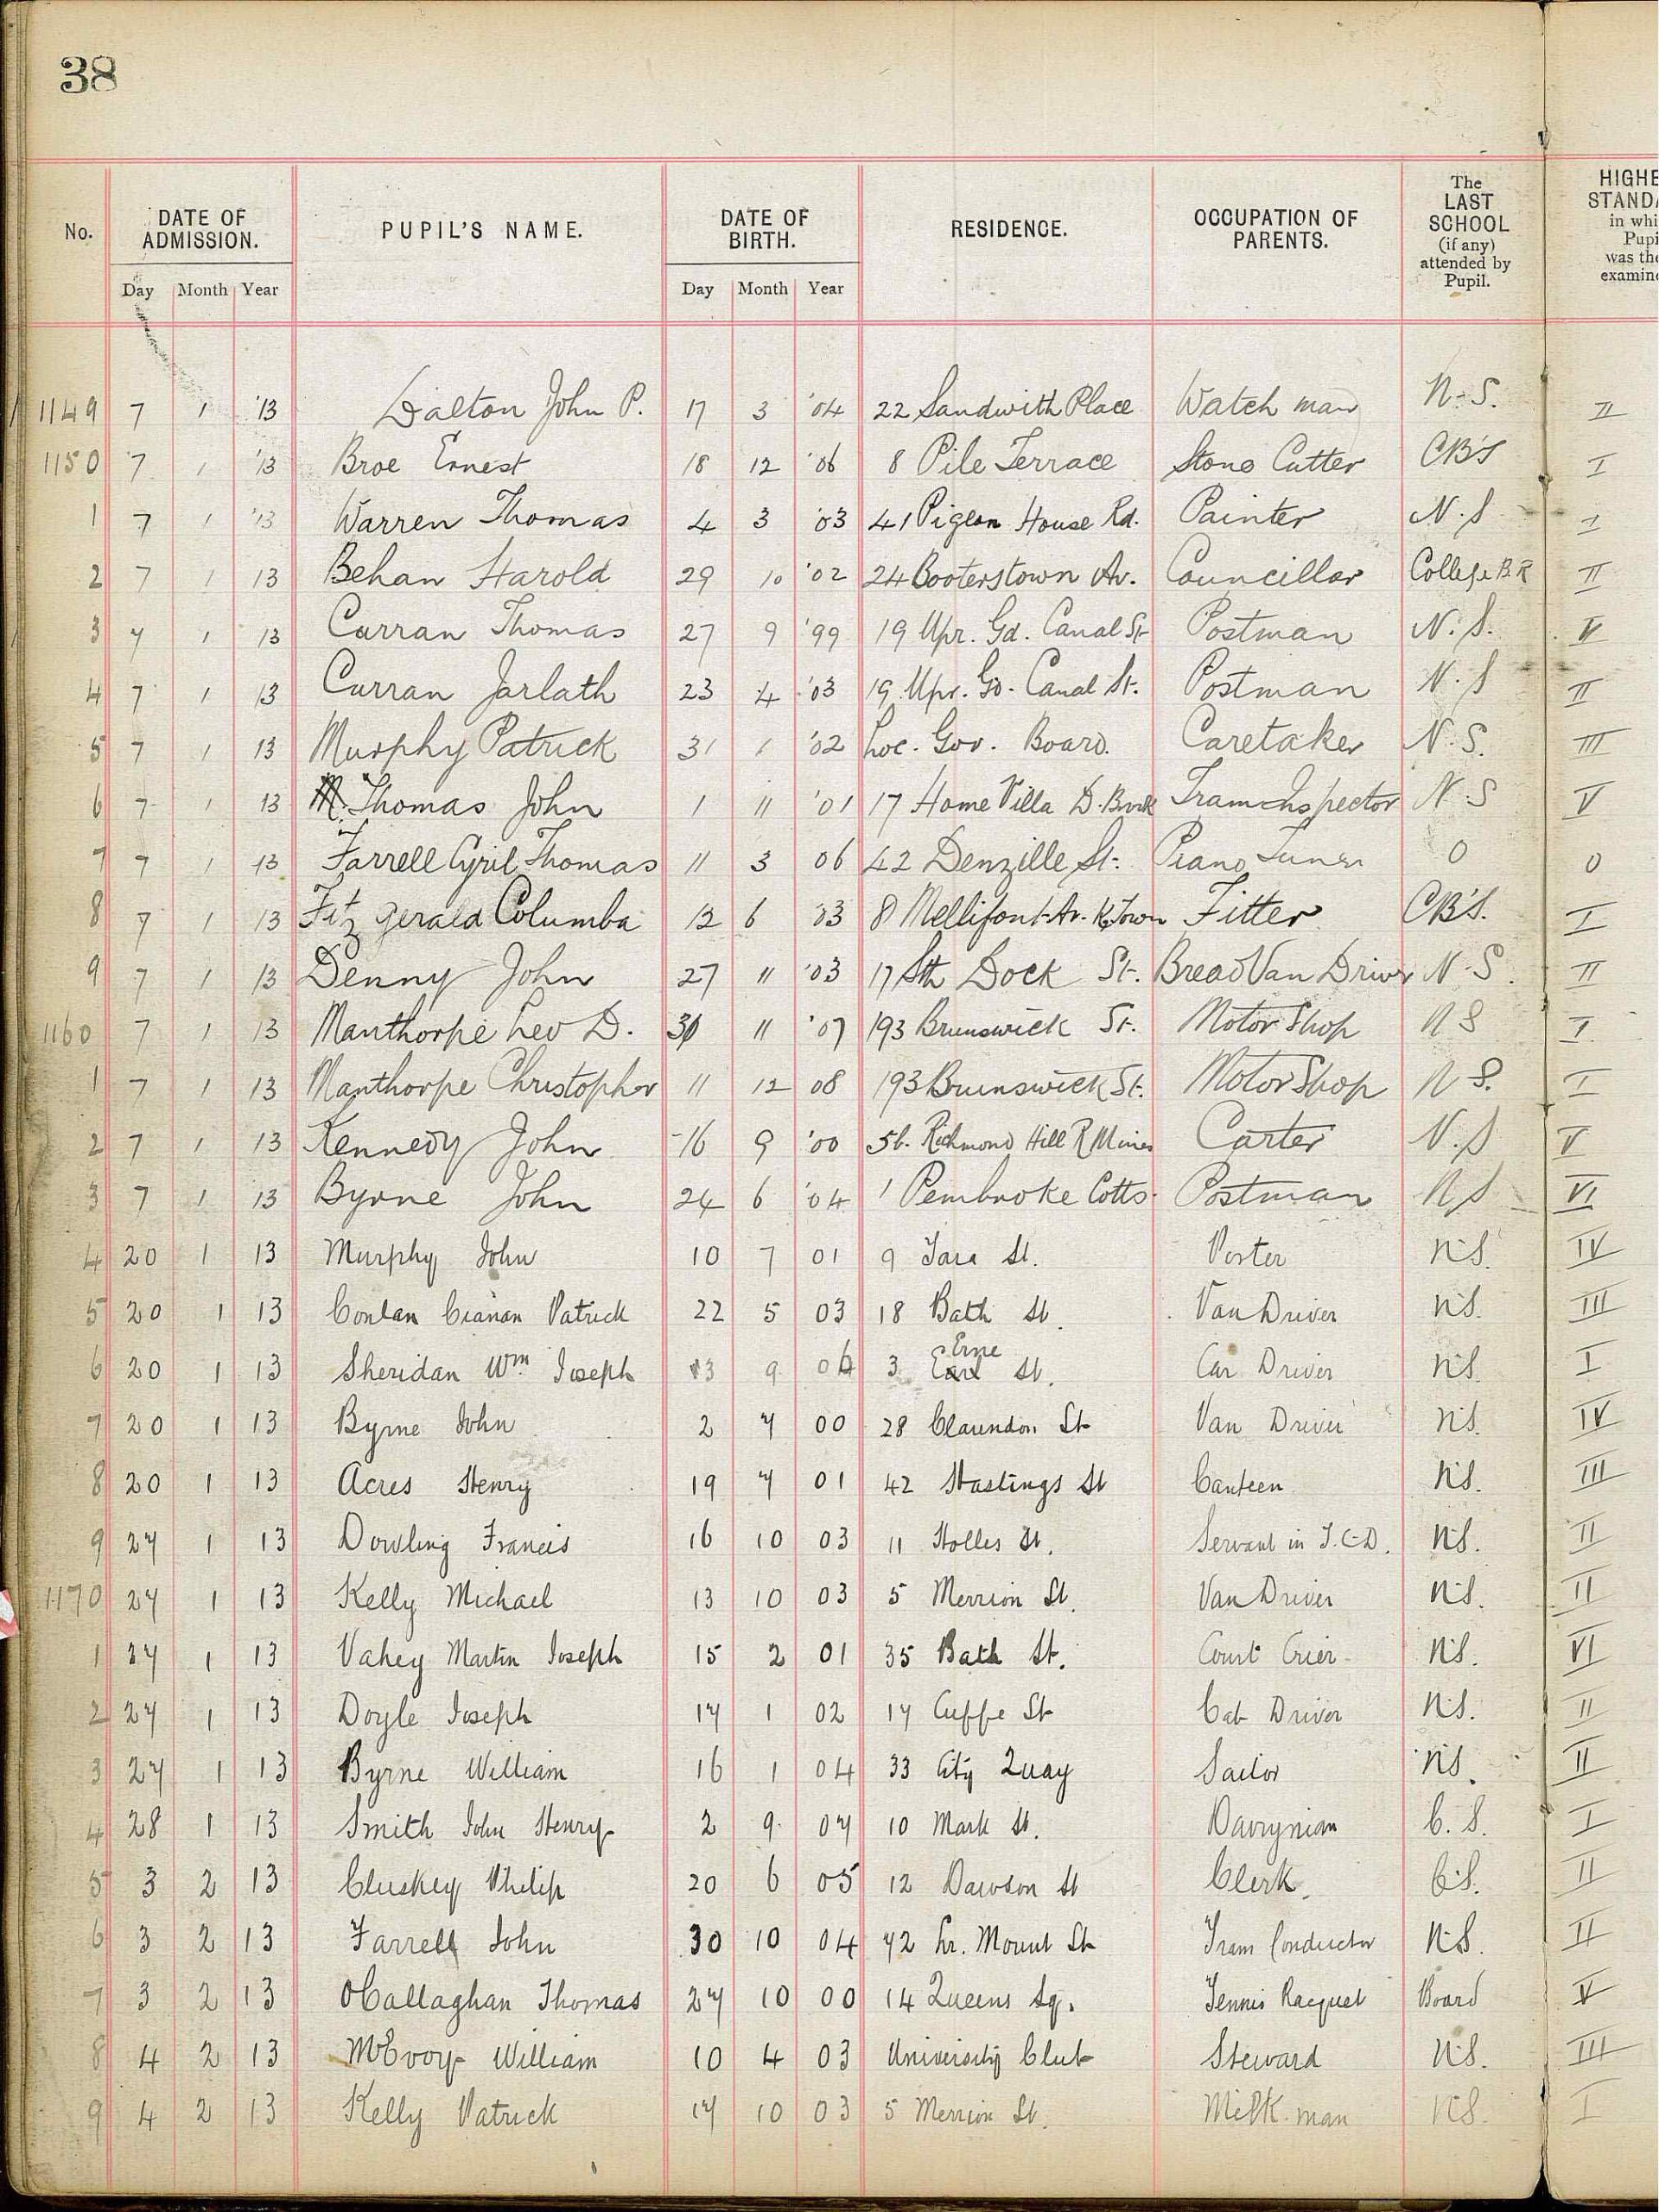 38
No. DATE OF ADMISSION. PUPIL'S NAME. DATE OF BIRTH. RESIDENCE. OCCUPATION OF PARENTS. The LAST SCHOOL (if any) attended by Pupil. HIGHE STANDA in whi Pupi was the examine
Day Month Year Day Month Year
1149 7 1 '13 Dalton John P. 17 3 '04 22 Sandwith Place Watch man N.S. II
1150 7 1 '13 Broe Ernest 18 12 '06 8 Pile Terrace Stone Cutter CB'S I
1 7 1 '13 Warren Thomas 4 3 '03 41 Pigeon House Rd. Painter N.S I
2 7 1 13 Behan Harold 29 10 '02 24 Booterstown Av. Councillor College B.R II
3 7 1 13 Curran Thomas 27 9 '99 19 Upr. Gd. Canal St Postman N.S. V
4 7 1 13 Curran Jarlath 23 4 '03 19 Upr. Gd. Canal St. Postman N.S II
5 7 1 13 Murphy Patrick 31 1 '02 Loc. Gov. Board. Caretaker N.S. III
6 7 1 13 Thomas John 1 11 '01 17 Home Villa D.Brook Tram Inspector N.S V
7 7 1 13 Farrell Cyril Thomas 11 3 06 42 Denzille St. Piano Tuner 0 0
8 7 1 13 Fitz gerald Columba 12 6 '03 8 Mellifont Av. K.Town Fitter CB'S. I
9 7 1 13 Denny John 27 11 '03 17 Sth Dock St. Bread Van Driver N.S. II
1160 7 1 13 Manthorpe Leo D. 30 11 '07 193 Brunswick St. Motor Shop N S I
1 7 1 13 Manthorpe Christopher 11 12 08 193 Brunswick St. Motor Shop N S. I
2 7 1 13 Kennedy John 16 9 '00 56. Richmond Hill R Mines Carter N.S V
3 7 1 13 Byrne John 24 6 '04 1 Pembroke Cotts. Postman N S VI
4 20 1 13 Murphy John 10 7 01 9 Tara St. Porter N.S. IV
5 20 1 13 Conlan Cianan Patrick 22 5 03 18 Bath St. Van Driver N.S. III
6 20 1 13 Sheridan Wm Joseph 13 9 06 3 Earl Erne St. Car Driver N.S. I
7 20 1 13 Byrne John 2 7 00 28 Clarendon St Van Driver N.S. IV
8 20 1 13 Acres Henry 19 7 01 42 Hastings St Canteen N.S. III
9 27 1 13 Dowling Francis 16 10 03 11 Holles St. Servant in T.C.D. N.S. II
1170 27 1 13 Kelly Michael 13 10 03 5 Merrion St. Van Driver N.S. II
1 27 1 13 Vahey Martin Joseph 15 2 01 35 Bath St. Court Crier N.S. VI
2 27 1 13 Doyle Joseph 17 1 02 17 Cuffe St Cab Driver N.S. II
3 27 1 13 Byrne William 16 1 04 33 City Quay Sailor N.S. II
4 28 1 13 Smith John Henry 2 9 07 10 Mark St. Dairyman C.S. I
5 3 2 13 Cluskey Philip 20 6 05 12 Dawson St Clerk. C.S. II
6 3 2 13 Farrell John 30 10 04 72 Lr. Mount St Tram Conductor N.S. II
7 3 2 13 OCallaghan Thomas 27 10 00 14 Queens Sq. Tennis Racquet Board V
8 4 2 13 McEvoy William 10 4 03 University Club Steward N.S. III
9 4 2 13 Kelly Patrick 17 10 03 5 Merrion St. Milk man N.S. I